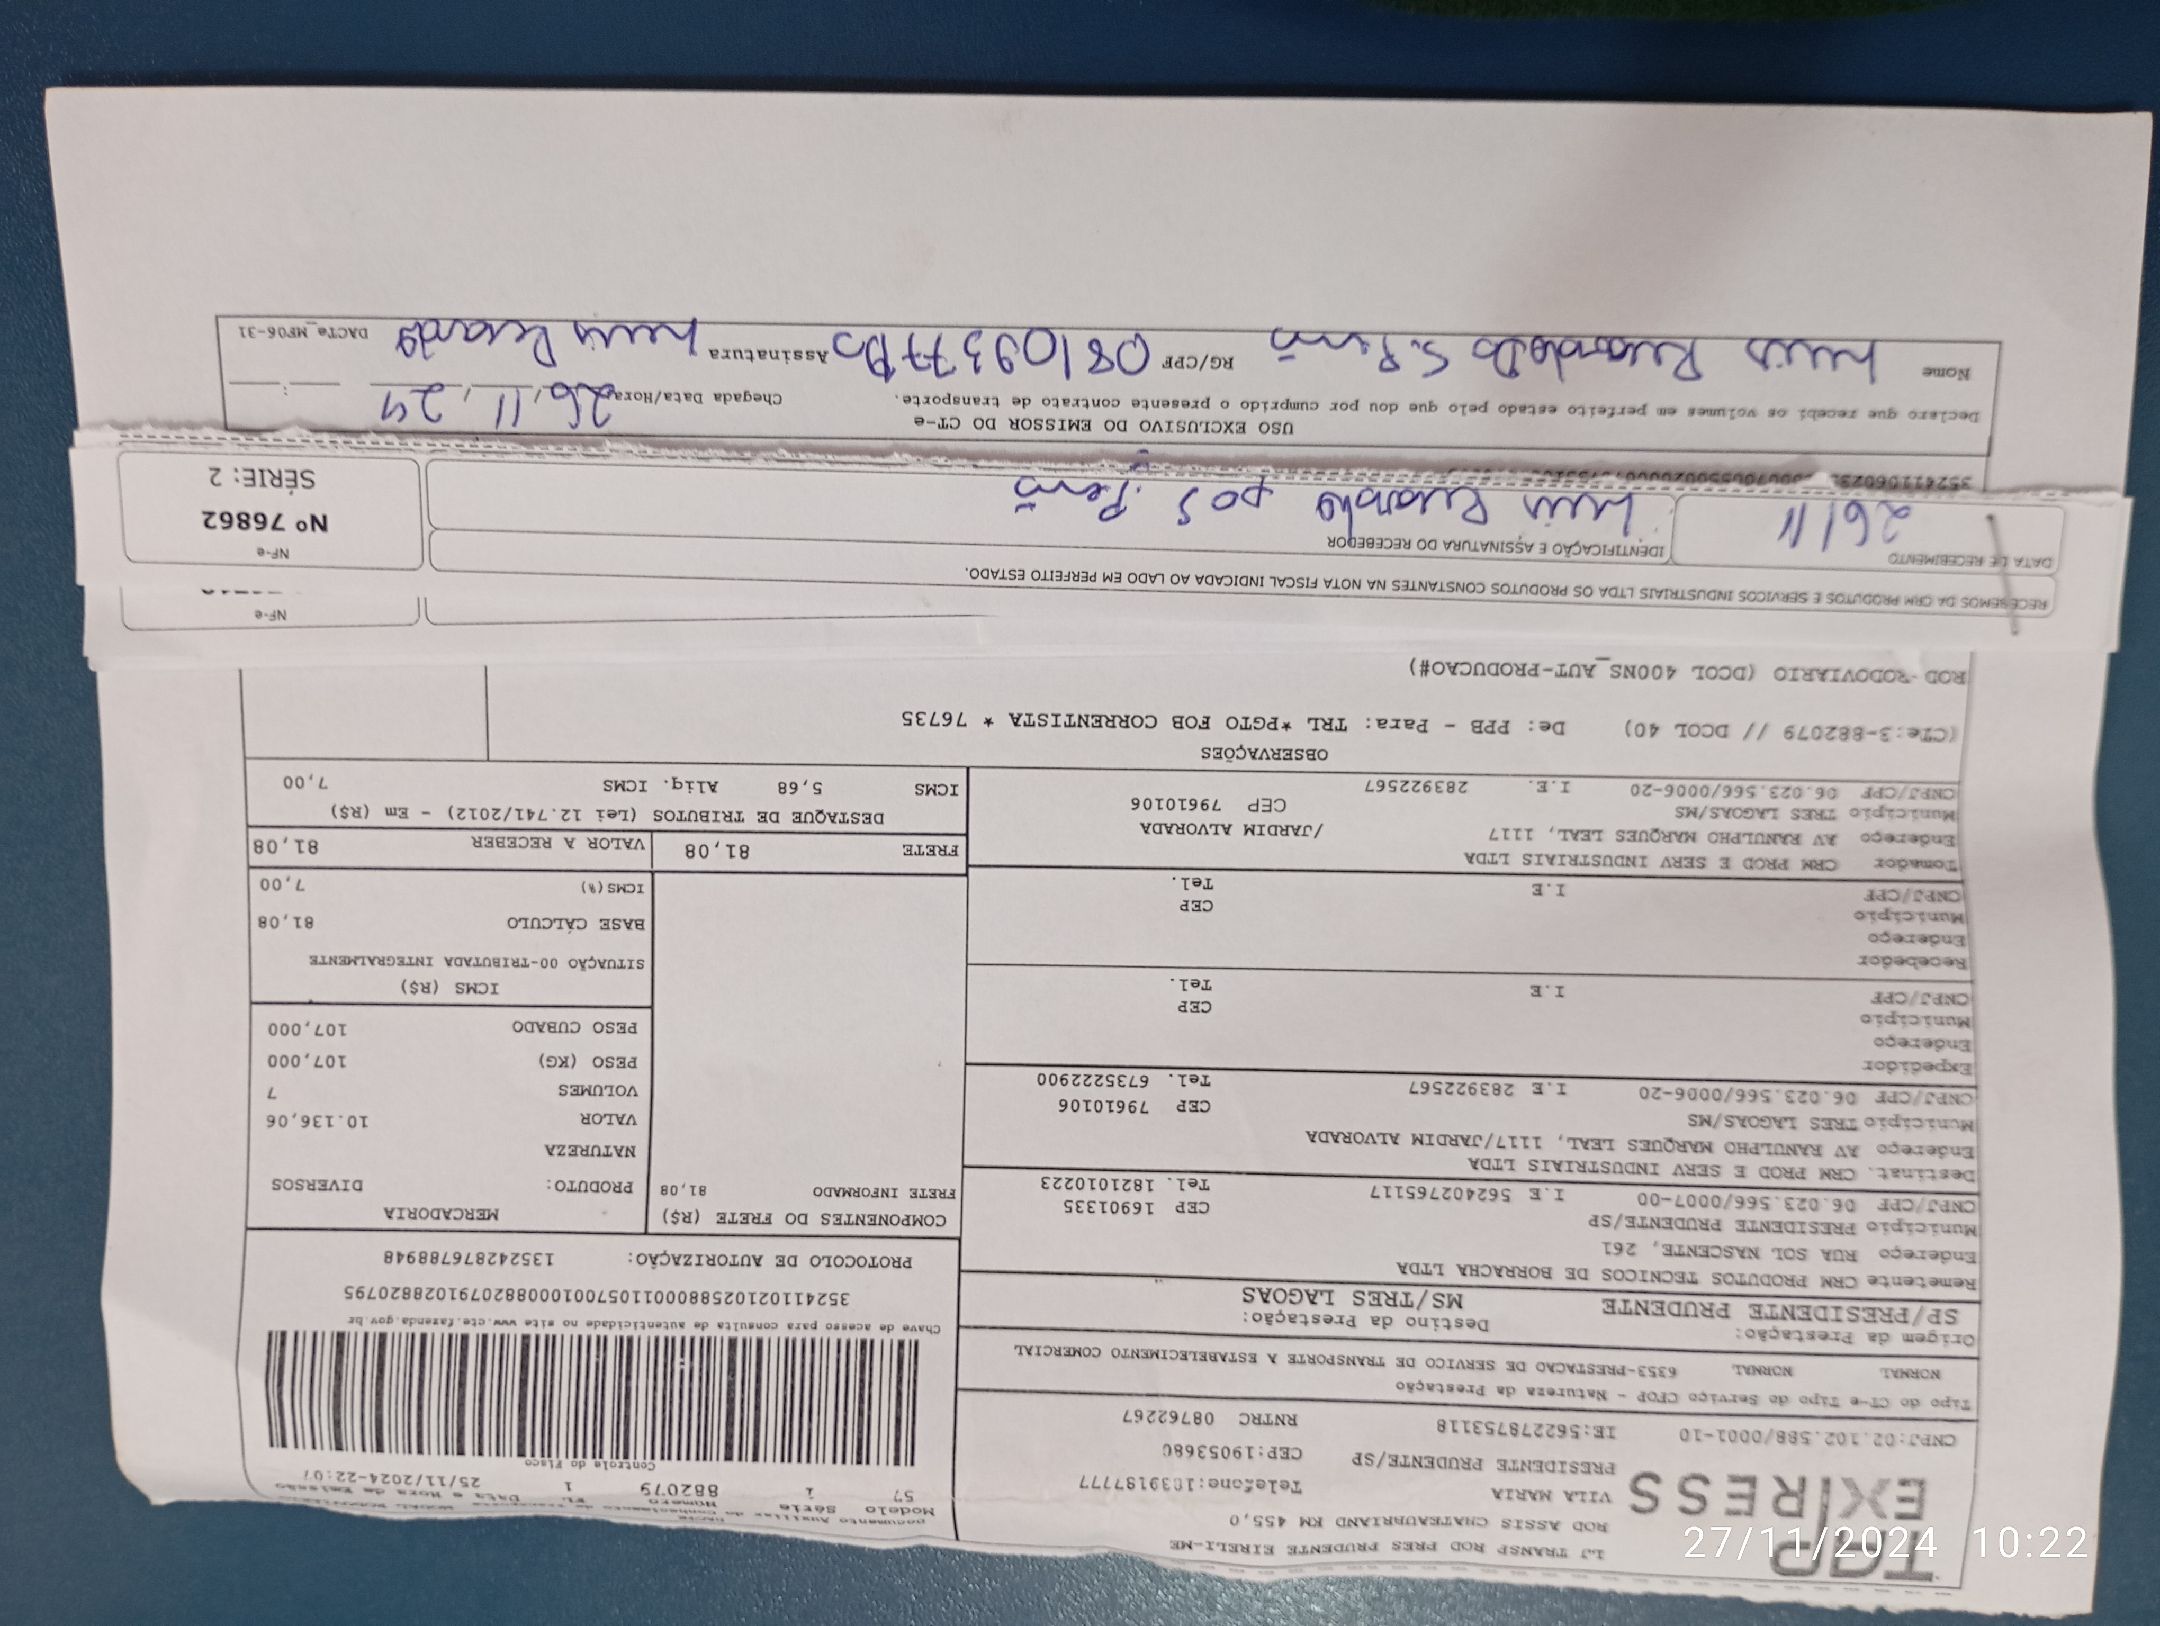 TGP
EXPRESS
LJ TRANSP ROD PRES PRUDENTE EIRELI-ME
ROD ASSIS CHATEAUBRIAND KM 455,0
VILA MARIA
Telefone:1839187777
PRESIDENTE PRUDENTE/SP
CEP:19053680
CNPJ:02.102.588/0001-10 IE:562278753118 RNTRC 08762267
Tipo do CT-e Tipo do Serviço CFOP - Natureza da Prestação
NORMAL NORMAL 6353-PRESTACAO DE SERVICO DE TRANSPORTE A ESTABELECIMENTO COMERCIAL
Origem da Prestação: Destino da Prestação:
SP/PRESIDENTE PRUDENTE MS/TRES LAGOAS
Documento Auxiliar do Conhecimento de Transporte
Modelo Série Número FL. Data e Hora de Emissão
57 1 882079 1 25/11/2024-22:07
Controle do Fisco
Chave de acesso para consulta de autenticidade no site www.cte.fazenda.gov.br
35241102102588000110570010008820791028820795
PROTOCOLO DE AUTORIZAÇÃO: 135242876788948
Remetente CRM PRODUTOS TECNICOS DE BORRACHA LTDA
Endereço RUA SOL NASCENTE, 261
Município PRESIDENTE PRUDENTE/SP CEP 16901335
CNPJ/CPF 06.023.566/0007-00 I.E 562402765117 Tel. 1821010223
Destinat. CRM PROD E SERV INDUSTRIAIS LTDA
Endereço AV RANULPHO MARQUES LEAL, 1117/JARDIM ALVORADA
Município TRES LAGOAS/MS CEP 79610106
CNPJ/CPF 06.023.566/0006-20 I.E 283922567 Tel. 6735222900
Expedidor
Endereço
Município CEP
CNPJ/CPF I.E Tel.
Recebedor
Endereço
Município CEP
CNPJ/CPF I.E Tel.
Tomador CRM PROD E SERV INDUSTRIAIS LTDA
Endereço AV RANULPHO MARQUES LEAL, 1117 /JARDIM ALVORADA
Município TRES LAGOAS/MS CEP 79610106
CNPJ/CPF 06.023.566/0006-20 I.E. 283922567
COMPONENTES DO FRETE (R$)
FRETE INFORMADO 81,08
MERCADORIA
PRODUTO: DIVERSOS
NATUREZA
VALOR 10.136,06
VOLUMES 7
PESO (KG) 107,000
PESO CUBADO 107,000
ICMS (R$)
SITUAÇÃO 00-TRIBUTADA INTEGRALMENTE
BASE CÁLCULO 81,08
ICMS(%) 7,00
FRETE 81,08 VALOR A RECEBER 81,08
DESTAQUE DE TRIBUTOS (Lei 12.741/2012) - Em (R$)
ICMS 5,68 Aliq. ICMS 7,00
OBSERVAÇÕES
(CTe:3-882079 // DCOL 40) De: PPB - Para: TRL *PGTO FOB CORRENTISTA * 76735
ROD -RODOVIARIO (DCOL 400NS_AUT-PRODUCAO#)
NF-e
RECEBEMOS DA CRM PRODUTOS E SERVICOS INDUSTRIAIS LTDA OS PRODUTOS CONSTANTES NA NOTA FISCAL INDICADA AO LADO EM PERFEITO ESTADO.
DATA DE RECEBIMENTO IDENTIFICAÇÃO E ASSINATURA DO RECEBEDOR
26/11 Luis Ricardo dos S. Penã
NF-e
Nº 76862
SÉRIE: 2
USO EXCLUSIVO DO EMISSOR DO CT-e
Declaro que recebi os volumes em perfeito estado pelo que dou por cumprido o presente contrato de transporte. Chegada Data/Hora 26,11,24
Nome Luis Ricardo Do S. Penã RG/CPF Assinatura Luis Ricardo DACTe_MF06-31
27/11/2024 10:22